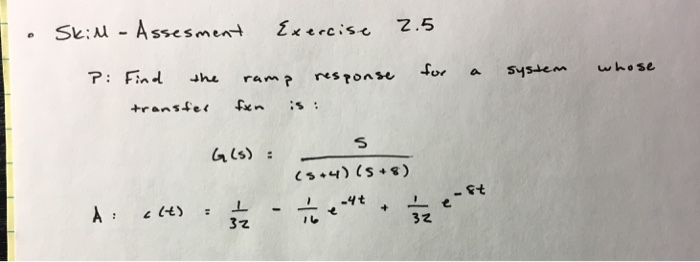 • Skill - Assesment Exercise 2.5
P: Find the ramp response for a system whose
transfer fxn is :
G(s) = s / (s+4)(s+8)
A : c(t) = 1/32 - 1/16 e^-4t + 1/32 e^-8t